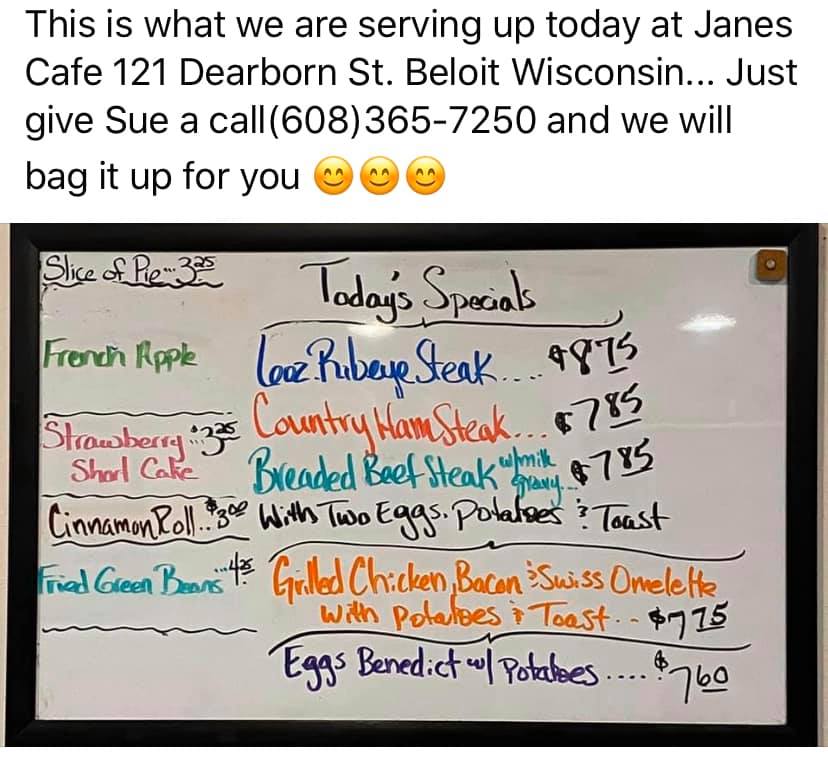 This is what we are serving up today at Janes
Cafe 121 Dearborn St. Beloit Wisconsin... Just
give Sue a call(608)365-7250 and we will
bag it up for you 😊😊😊
Slice of Pie... 3.25
Today's Specials
French Apple
6oz Ribeye Steak.... $8 75
Strawberry... $3 25
Short Cake
Country Ham Steak... $7 85
Breaded Beef Steak w/milk gravy.. $7 85
Cinnamon Roll.. $3 00
With Two Eggs. Potatoes & Toast
Fried Green Beans ...4 25
Grilled Chicken, Bacon & Swiss Omelette
With Potatoes & Toast.-- $7 75
Eggs Benedict w/ Potatoes .... $7 60